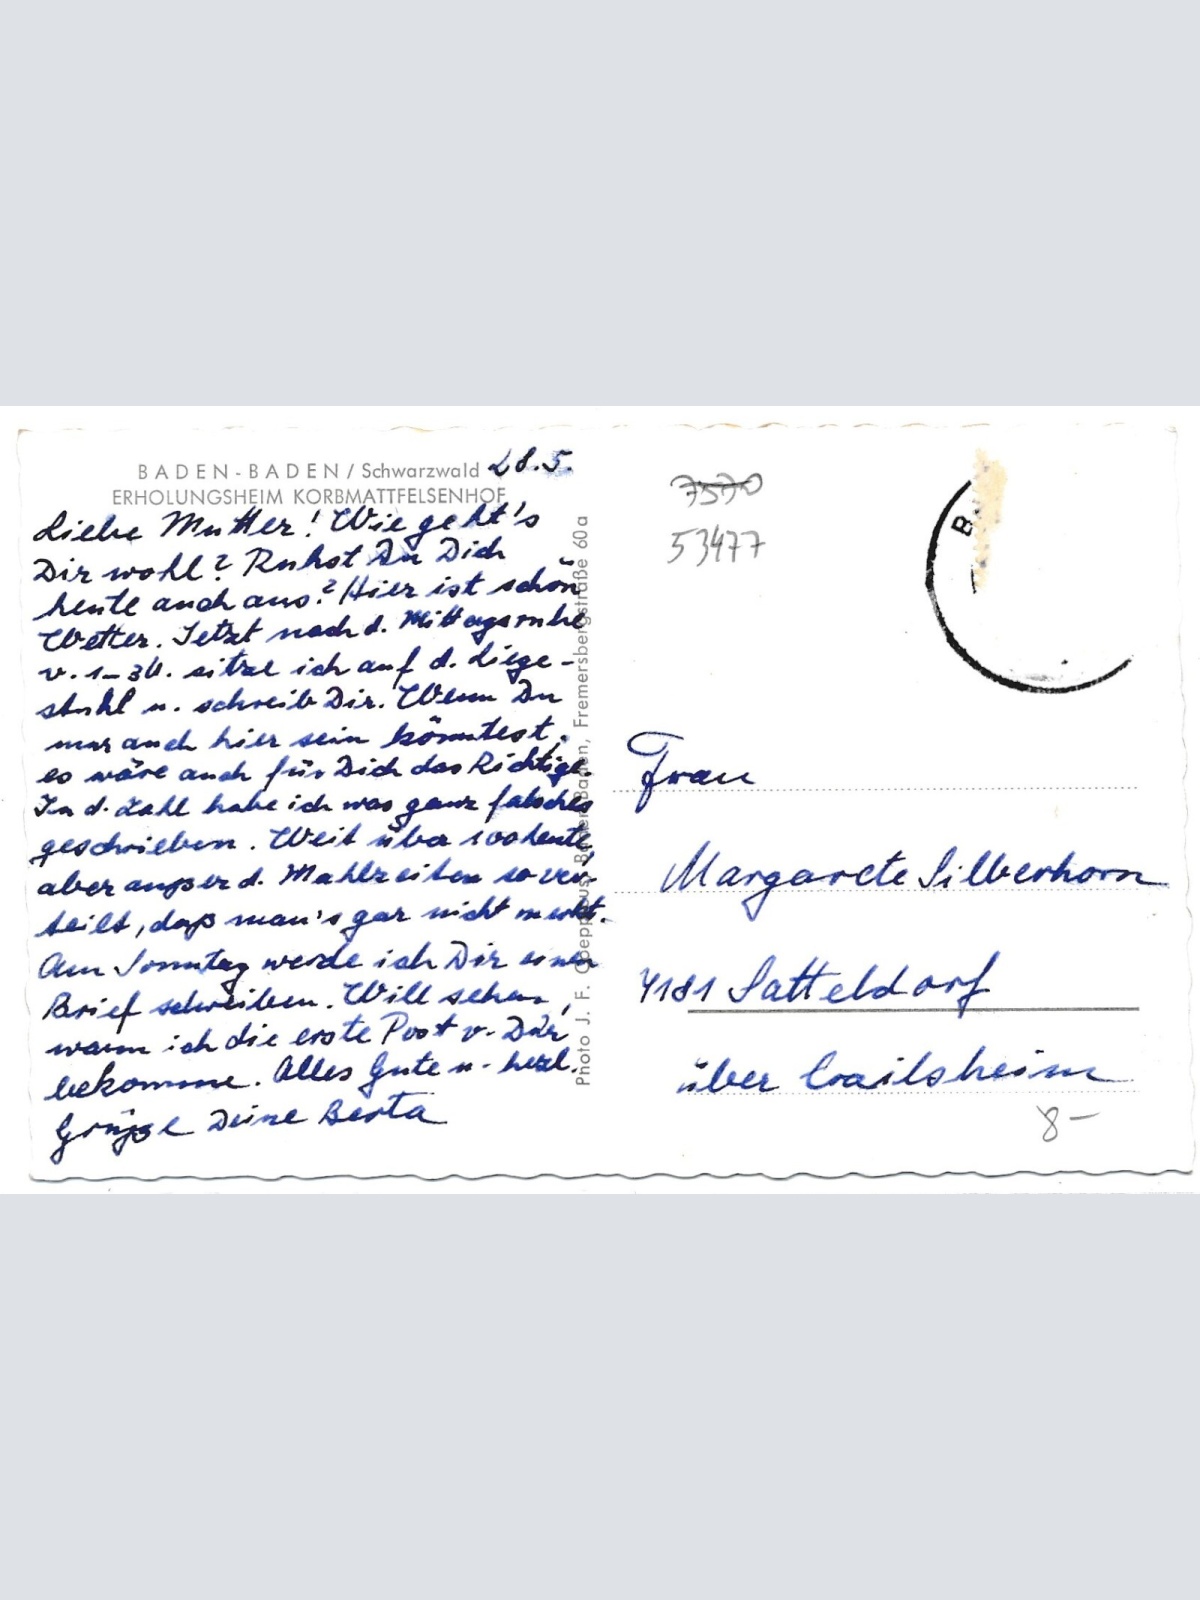 BADEN-BADEN / Schwarzwald 28.5.
ERHOLUNGSHEIM KORBMATTFELSENHOF
Liebe Mutter! Wie geht's
Dir wohl? Ruhst Du Dich
heute auch aus? Hier ist schön
Wetter. Jetzt nach d. Mittagsruhe
v. 1-3 U. sitze ich auf d. Liege-
stuhl u. schreib Dir. Wenn Du
nur auch hier sein könntest,
es wäre auch für Dich das Richtige.
In d. Zahl habe ich was ganz falsches
geschrieben. Weit über 100 heute,
aber außer d. Mahlzeiten so ver-
teilt, daß man's gar nicht merkt.
Am Sonntag werde ich Dir einen
Brief schreiben. Will sehen,
wann ich die erste Post v. Dir
bekomme. Alles Gute u. herzl.
Grüße Deine Berta
Photo J. F. Coeppicus, Baden-Baden, Fremersbergstraße 60a
7570
53477
B
Frau
Margarete Silberhorn
7181 Satteldorf
über Crailsheim
8-